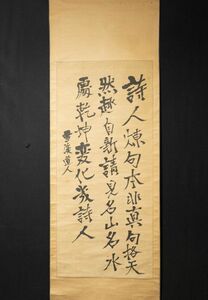 詩人煉句本非真句格天
然趣自新請見名山名水
處乾坤変化我詩人
道人